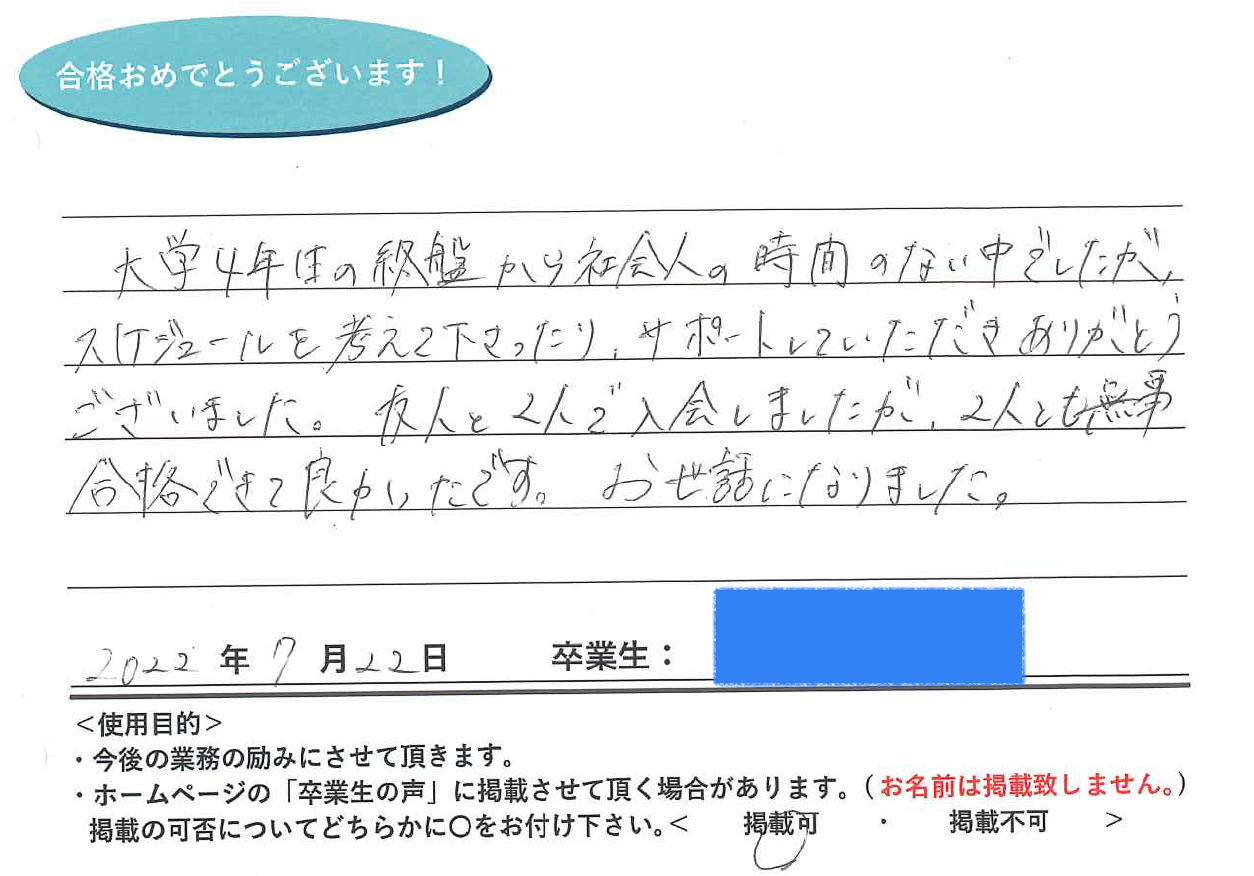 合格おめでとうございます!
大学4年生の終盤から社会人の時間のない中でしたが、
スケジュールを考えて下さったり、サポートしていただきありがとう
ございました。友人と2人で入会しましたが、2人とも無事
合格できて良かったです。お世話になりました。
2022年7月22日 卒業生:
<使用目的>
・今後の業務の励みにさせて頂きます。
・ホームページの「卒業生の声」に掲載させて頂く場合があります。(お名前は掲載致しません。)
掲載の可否についてどちらかに〇をお付け下さい。< 掲載可 ・ 掲載不可 >